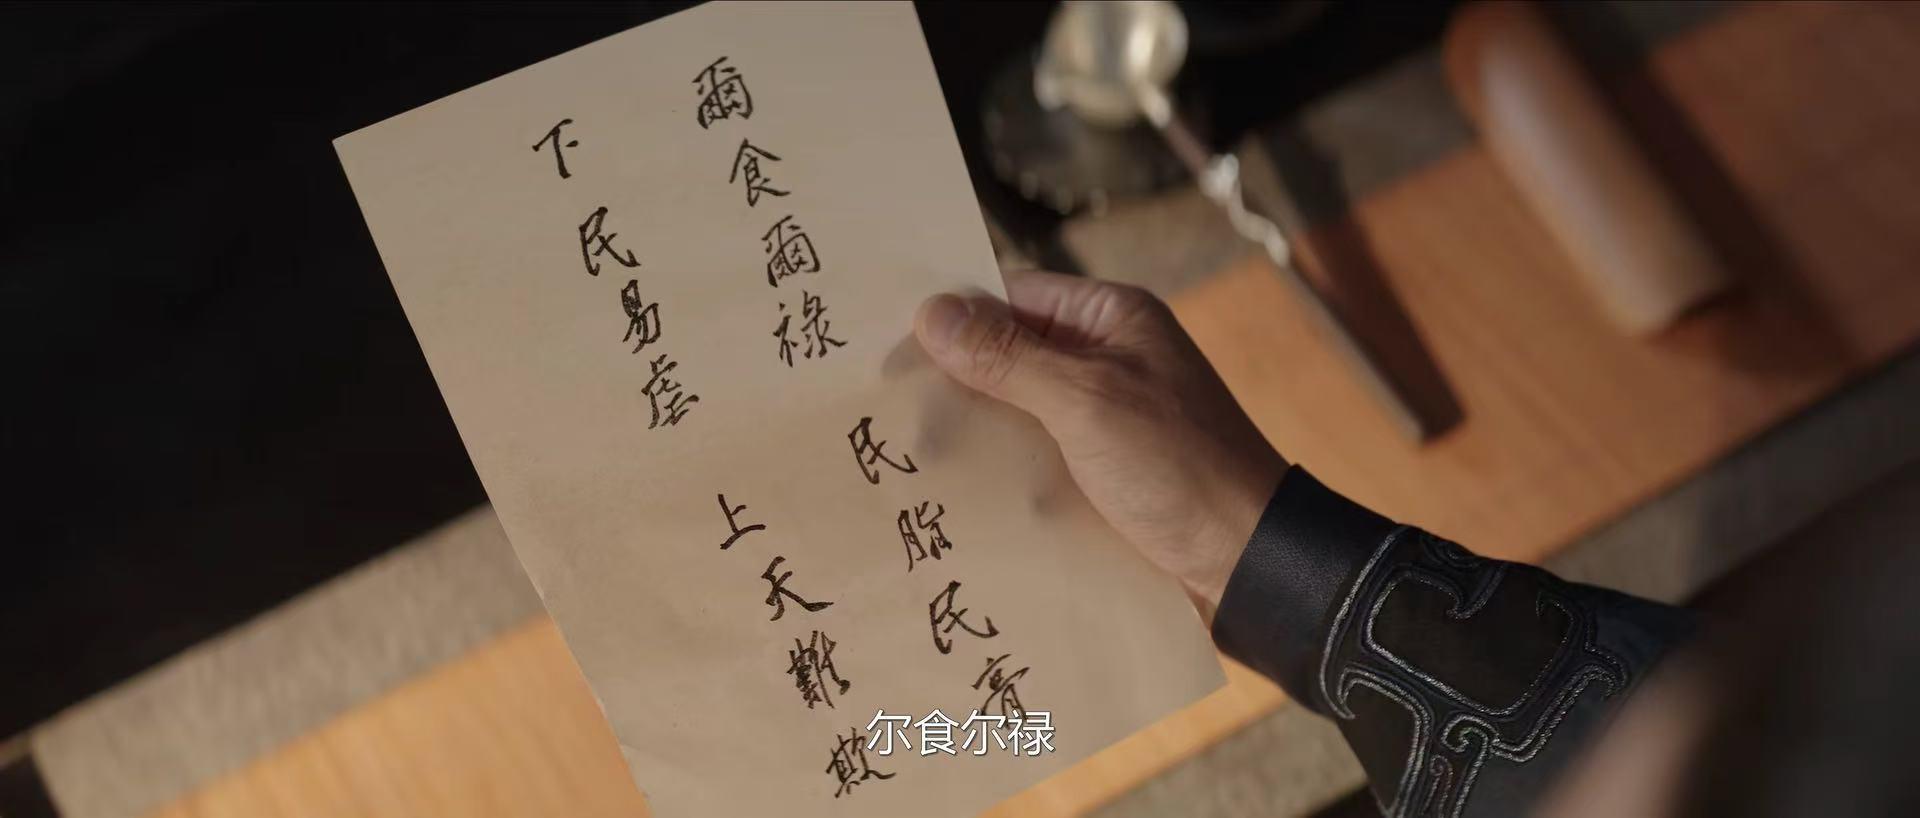 爾食爾祿 民脂民膏
下民易虐 上天難欺
尔食尔禄